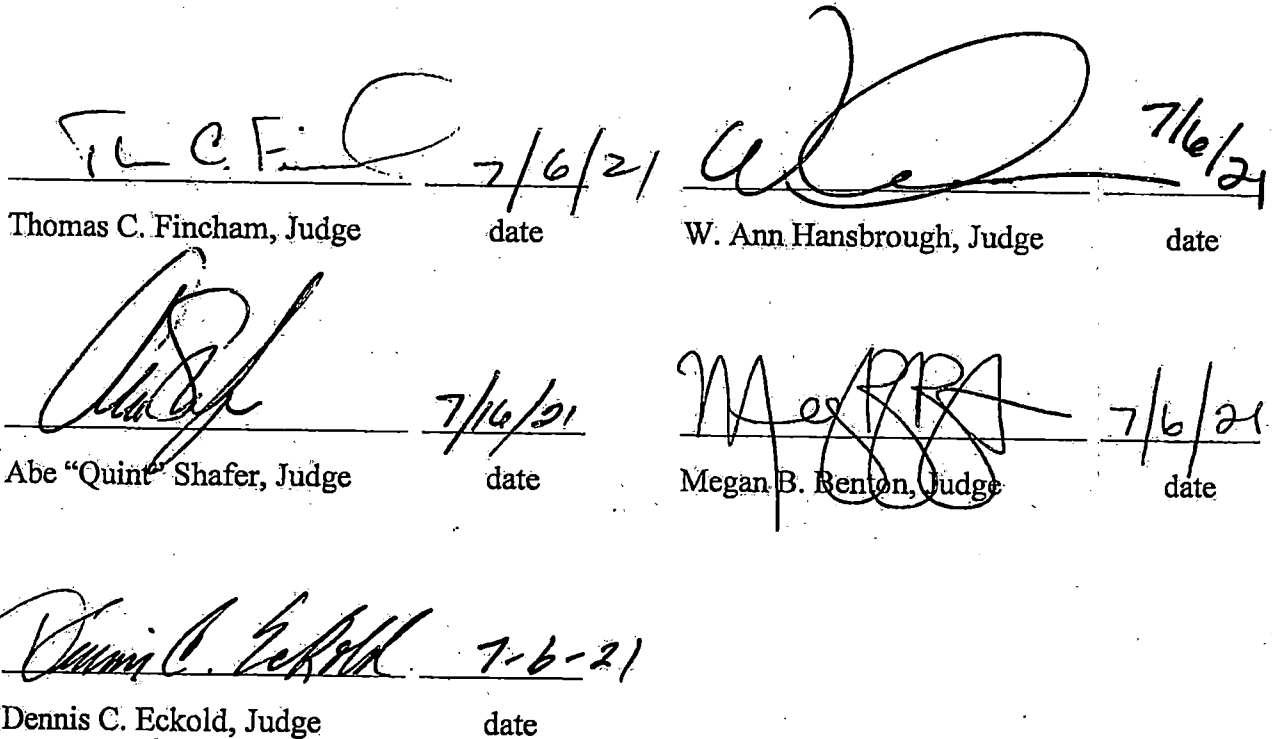 Th C. Fin 7/6/21 7/6/21
Thomas C. Fincham, Judge date W. Ann Hansbrough, Judge date
7/16/21 7/6/21
Abe “Quint” Shafer, Judge date Megan B. Benton, Judge date
Dennis C. Eckold 7-6-21
Dennis C. Eckold, Judge date